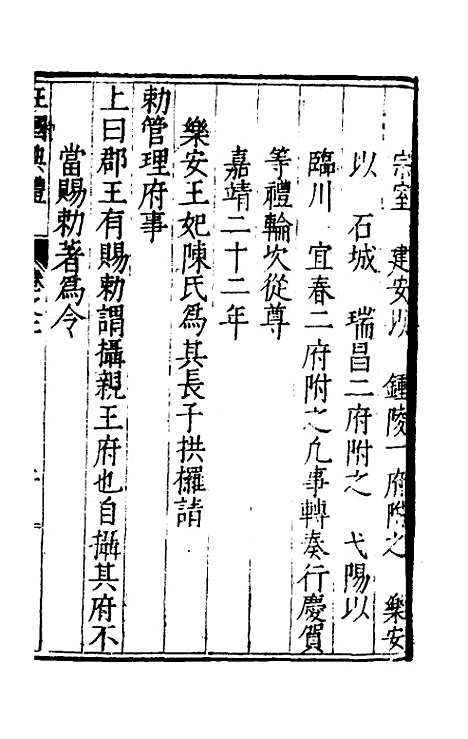 宗室　建安以　鍾陵一府附之　樂安
以　石城　瑞昌二府附之　弋陽以
臨川　宜春二府附之凡事轉奏行慶賀
等禮輪次從尊
嘉靖二十二年
樂安王妃陳氏爲其長子拱欏請
勑管理府事
上曰郡王有賜勑謂攝親王府也自攝其府不
當賜勑著爲令
王國典禮